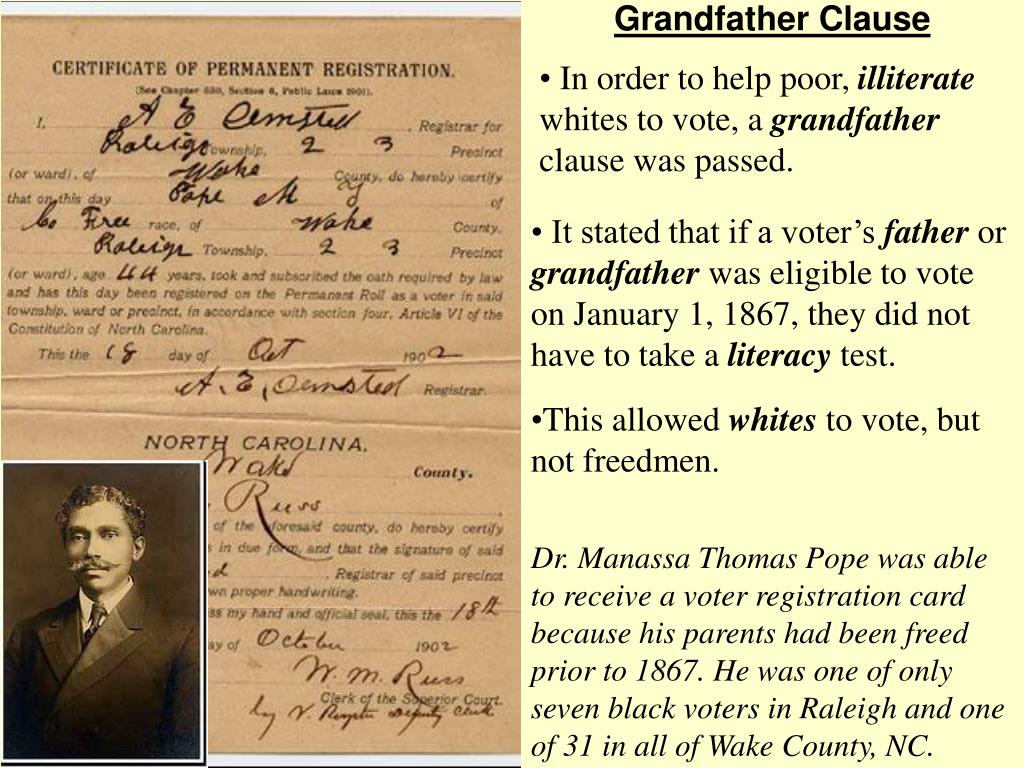 CERTIFICATE OF PERMANENT REGISTRATION.
(See Chapter 550, Section 6, Public Laws 1901).
I, A E Olmsted, Registrar for
Raleigh Township, 2 3 Precinct
(or ward), of Wake County, do hereby certify
that on this day Pope M of
Co Free race, of Wake County,
Raleigh Township, 2 3 Precinct
(or ward), age 44 years, took and subscribed the oath required by law
and has this day been registered on the Permanent Roll as a voter in said
township, ward or precinct, in accordance with section four, Article VI of the
Constitution of North Carolina.
This the 18 day of Oct 1902
A. E. Olmsted Registrar.
NORTH CAROLINA,
Wake County.
Russ
of the aforesaid county, do hereby certify
in due form, and that the signature of said
, Registrar of said precinct
proper handwriting.
my hand and official seal, this the 18th
of October 1902
W. M. Russ
Clerk of the Superior Court.
by Deputy Clerk
Grandfather Clause
• In order to help poor, illiterate
whites to vote, a grandfather
clause was passed.
• It stated that if a voter’s father or
grandfather was eligible to vote
on January 1, 1867, they did not
have to take a literacy test.
•This allowed whites to vote, but
not freedmen.
Dr. Manassa Thomas Pope was able
to receive a voter registration card
because his parents had been freed
prior to 1867. He was one of only
seven black voters in Raleigh and one
of 31 in all of Wake County, NC.